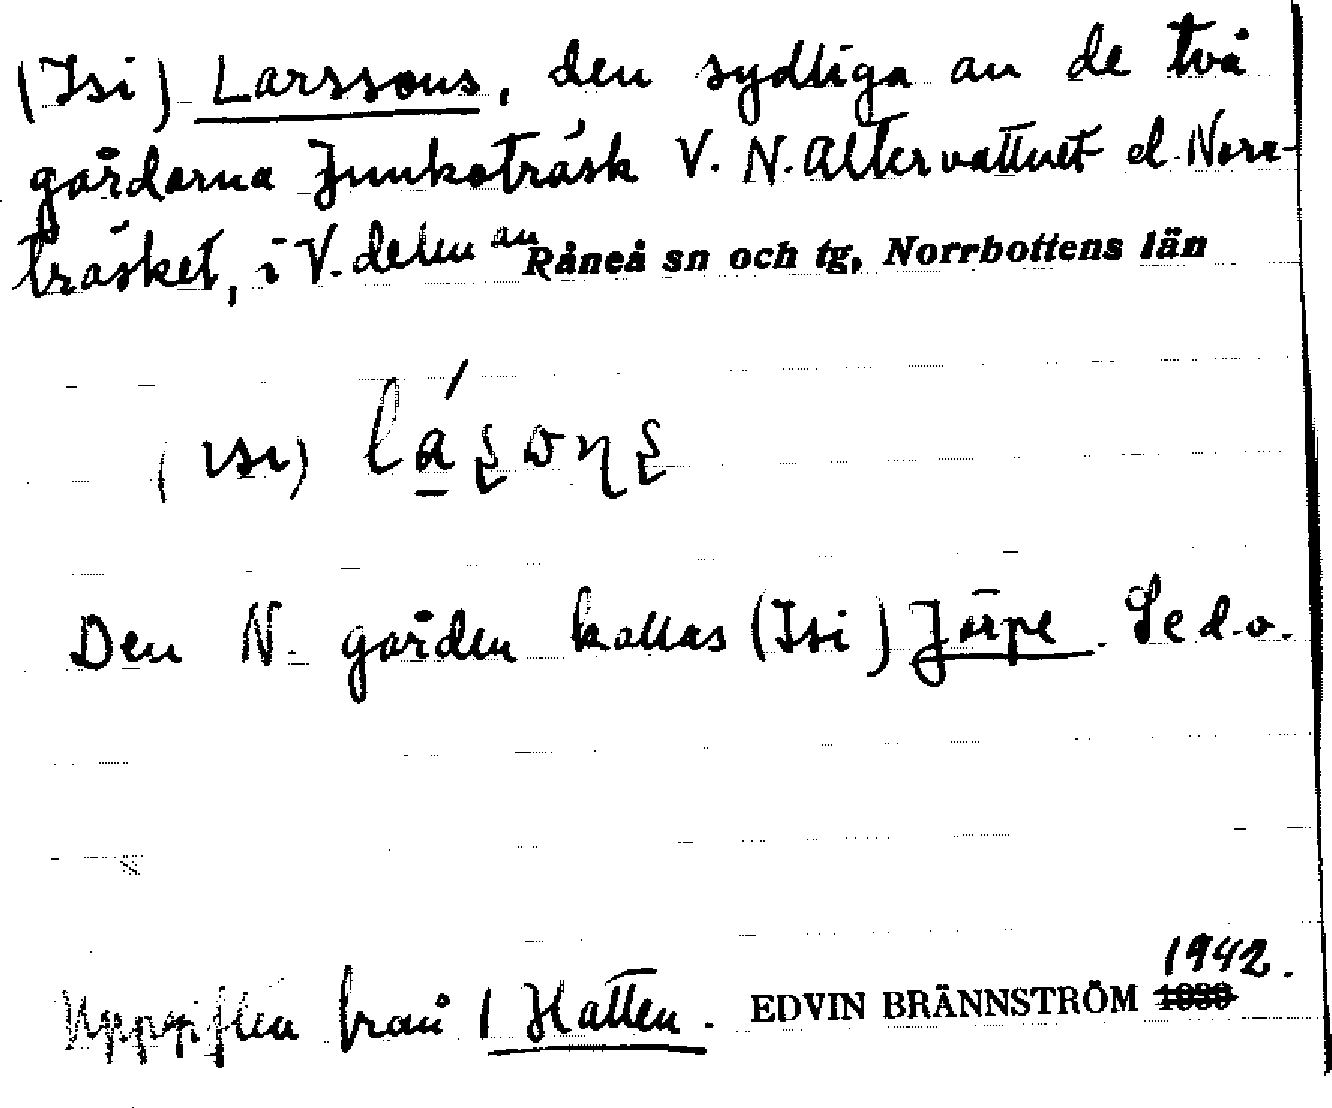 (Isi) Larssons, den sydliga av de två
gårdarna Junkoträsk V. N. Altervattnet el. Norr-
träsket, i V. delen av Råneå sn och tg, Norrbottens län
(ısı)
Den N. gården kallas (Isi) Järpe. Se d.o.
Uppgiften från I Hatten. EDVIN BRÄNNSTRÖM 1942.